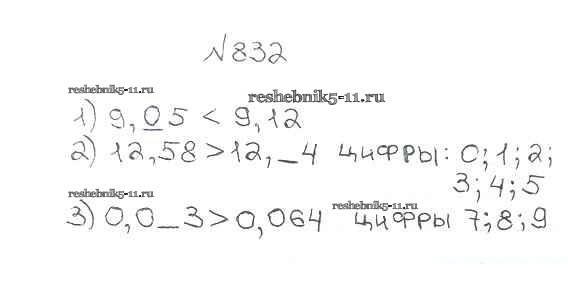 №832
reshebnik5-11.ru
reshebnik5-11.ru
1) 9,05 < 9,12
2) 12,58 > 12,_4 цифры: 0; 1; 2;
3; 4; 5
reshebnik5-11.ru
reshebnik5-11.ru
3) 0,0_3 > 0,064 цифры 7; 8; 9